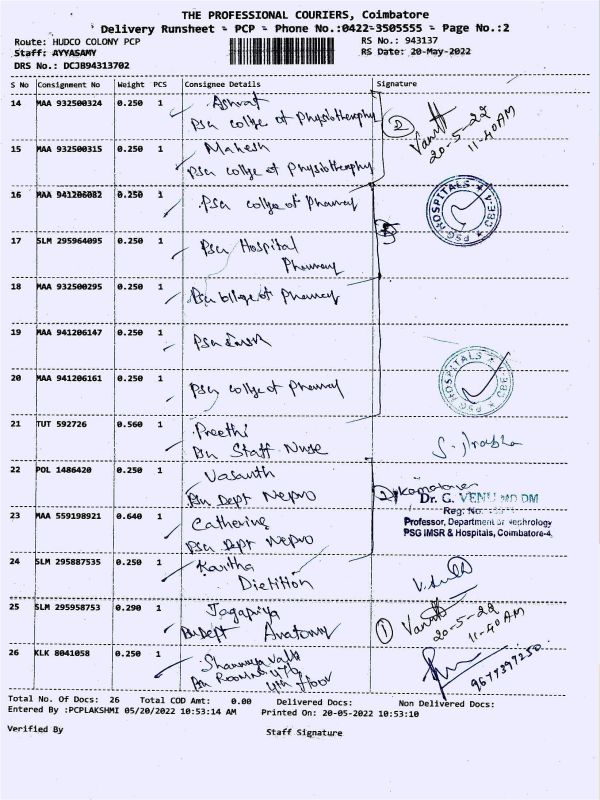 THE PROFESSIONAL COURIERS, Coimbatore
Delivery Runsheet - PCP - Phone No.:0422-3505555 - Page No.:2
Route: HUDCO COLONY PCP RS No.: 943137
Staff: AYYASAMY RS Date: 20-May-2022
DRS No.: DCJB94313702
S No Consignment No Weight PCS Consignee Details Signature
14 MAA 932500324 0.250 1 Ashrat
PSG college of Physiotheraphy
2 Vasanth 20-5-22 11-40AM
15 MAA 932500315 0.250 1 Mahesh
PSG college of Physiotheraphy
16 MAA 941206082 0.250 1 PSG college of Pharmacy
PSG HOSPITALS ★ CBE-4 ★
17 SLM 295964095 0.250 1 PSG Hospital
Pharmacy
18 MAA 932500295 0.250 1 PSG College of Pharmacy
19 MAA 941206147 0.250 1 PSG
20 MAA 941206161 0.250 1 PSG college of Pharmacy
PSG HOSPITALS CBE
21 TUT 592726 0.560 1 Preethi
PSG Staff Nurse
22 POL 1486420 0.250 1 Vasanth
PSG Dept Nepro
2
Dr. G. VENU MD DM
Reg. No.
Professor, Department of Nephrology
PSG IMSR & Hospitals, Coimbatore-4.
23 MAA 559198921 0.640 1 Catherine
PSG Dept Nepro
24 SLM 295887535 0.250 1 Karitha
Dietition
25 SLM 295958753 0.290 1 Jagapriya
PSG Dept Anatomy
1 Vasanth 20-5-22 11-40AM
26 KLK 8041058 0.250 1
Room no 476
4th floor
9677397250
Total No. Of Docs: 26 Total COD Amt: 0.00 Delivered Docs: Non Delivered Docs:
Entered By :PCPLAKSHMI 05/20/2022 10:53:14 AM Printed On: 20-05-2022 10:53:10
Verified By Staff Signature